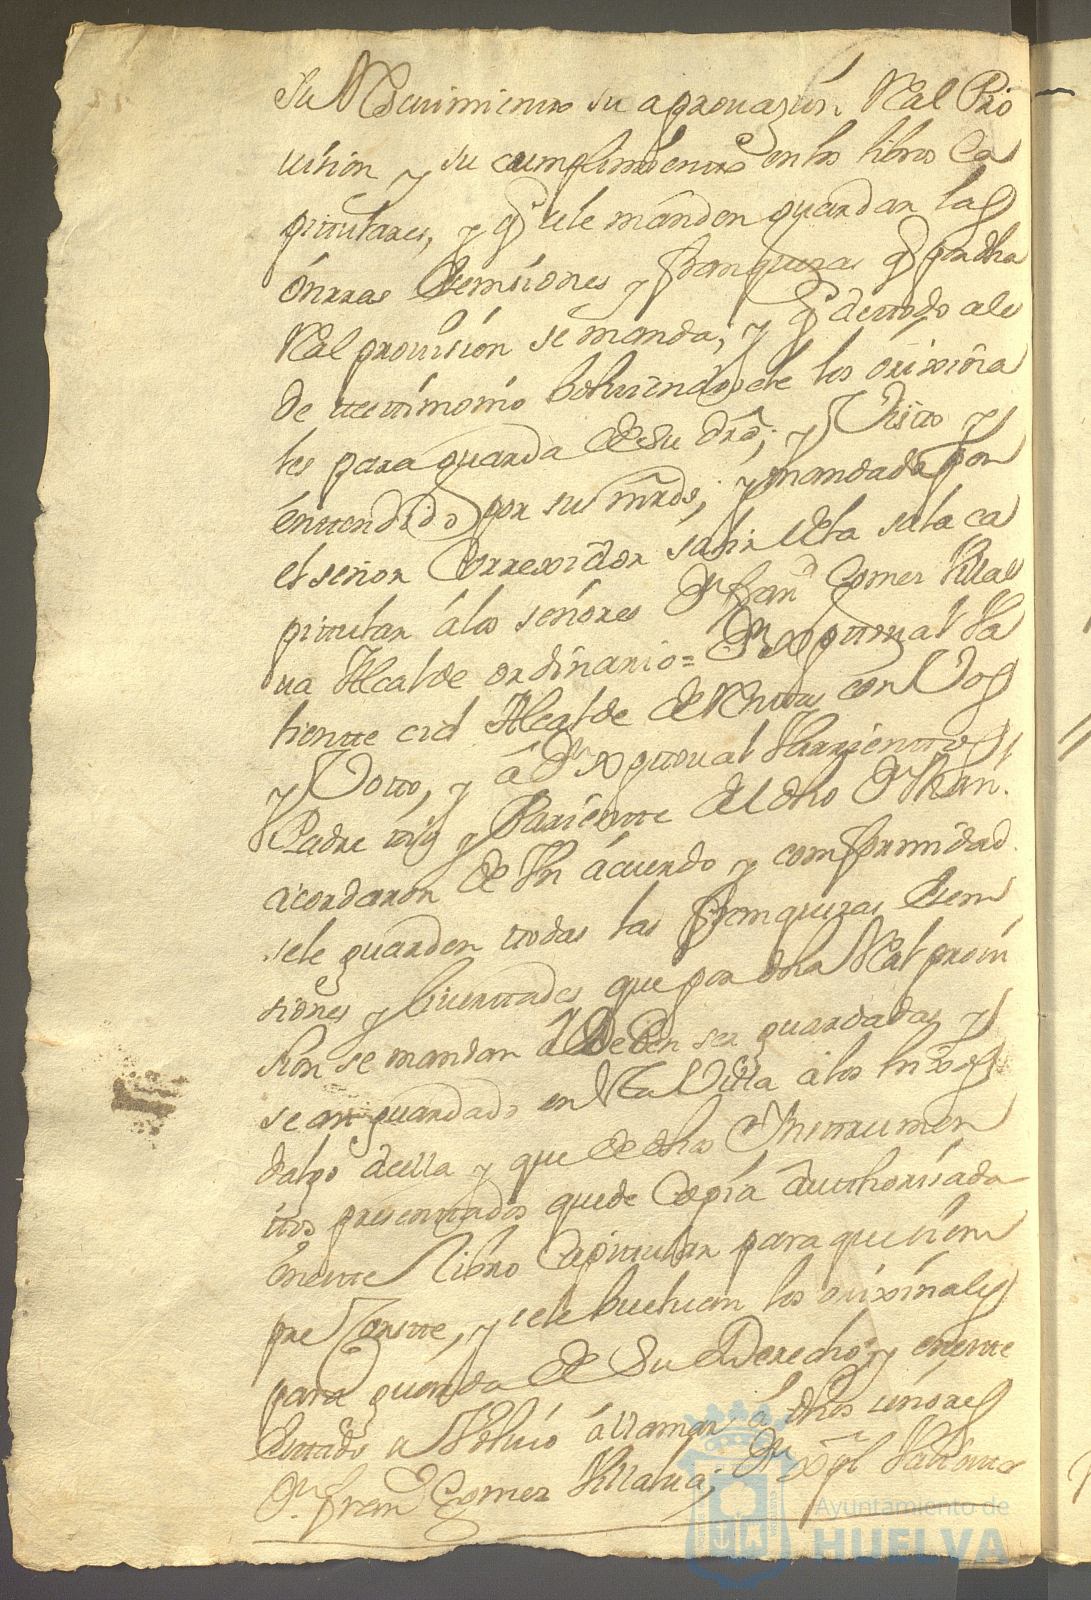 su Reciuimiento su aprouazion. Real Pro
uision y su cumplimiento en los libros Ca
pitulares, y q̃ se le manden guardar las
onrras esempsiones y franquezas q̃ por dha
Real prouision se manda; y q̃ de todo se le
de testimonio boluiendosele los orixina
les para guarda de su dro; y Visto y
entendido por sus mrds; y mandado por
el señor Correxidor salir de la sala ca
pitular a los señores Dn. franco Gomez Villal
ua Alcalde ordinario = Dn Xptoual Va
liente cid Alcalde de con Vos
y Voto, y a Dn Xptoual Varrientos
Padre y Pariente del dho Dn
acordaron de Vn acuerdo y comformidad
se le guarden todas las franquezas esem
siones y liuertades que por dha Real proui
sion se mandan deben ser guardadas y
se an guardado en esta Villa a los hixos
dalgo de ella y que de dhos Ynstrumen
tos presentados quede Copia authorisada
en este Libro Capitular para que siem
pre Conste, y se le bueluan los orixinales
para guarda de su Derecho; y en este
estado se Voluio a llamar a dhos señores
Dn. franco Gomez Villalua; Dn Xptl Valiente
Ayuntamiento de
HUELVA